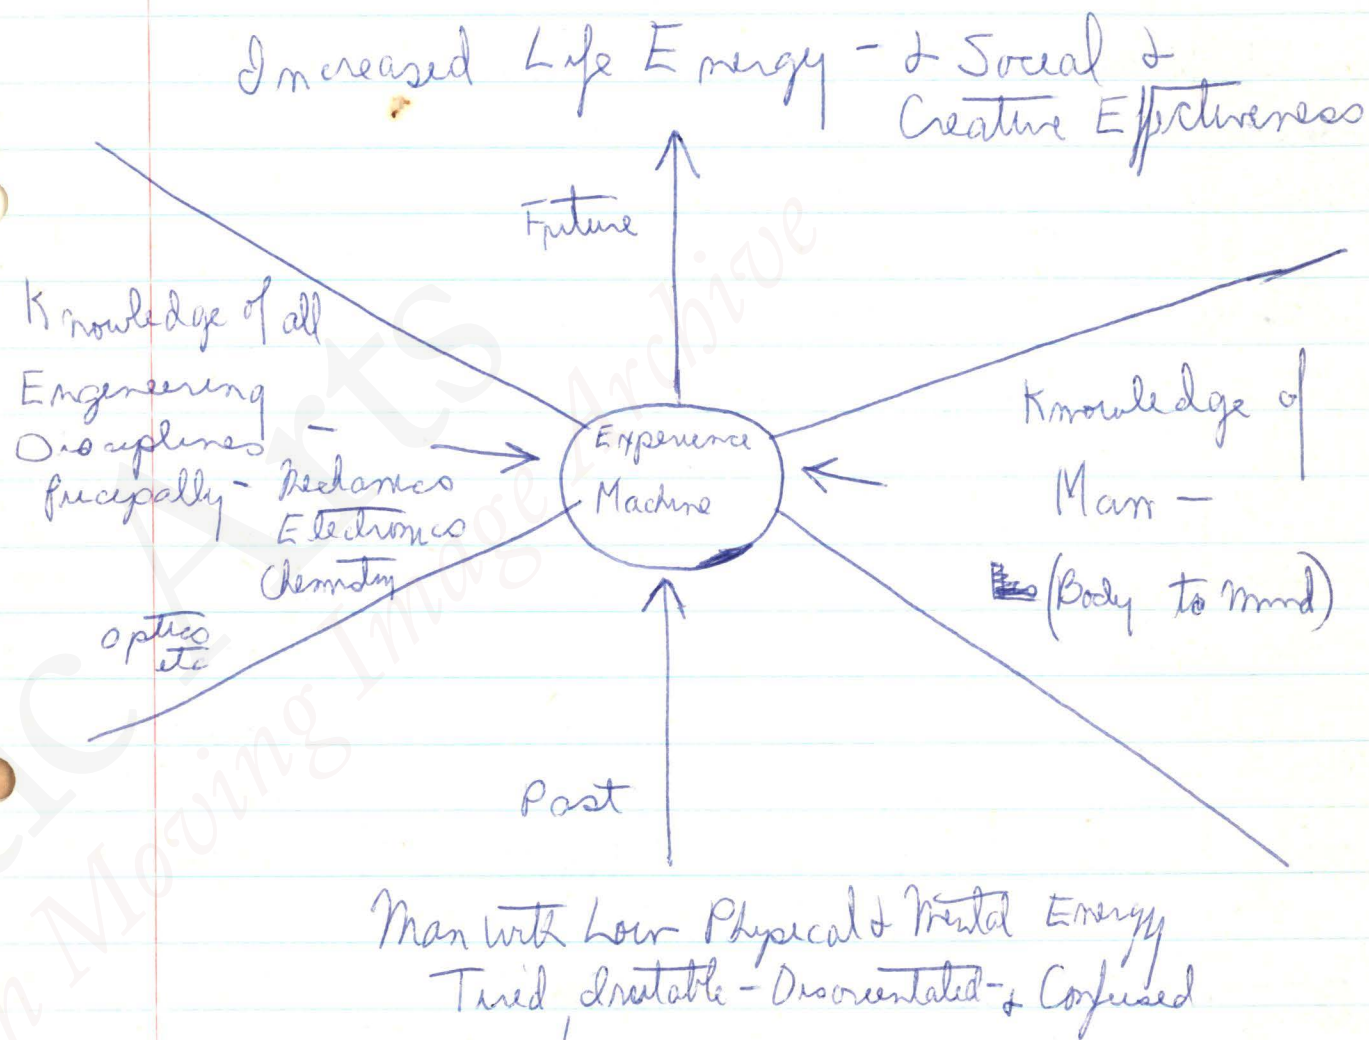 Increased Life Energy - & Social &
Creative Effectiveness
Future
Knowledge of all
Engineering
Disciplines -
principally - Mechanics
Electronics
Chemistry
optics
etc
Experience
Machine
Knowledge of
Man -
(Body to Mind)
Past
Man with Low Physical & Mental Energy
Tired, Irritable - Disorientated - & Confused
Arts
Moving Image Archive